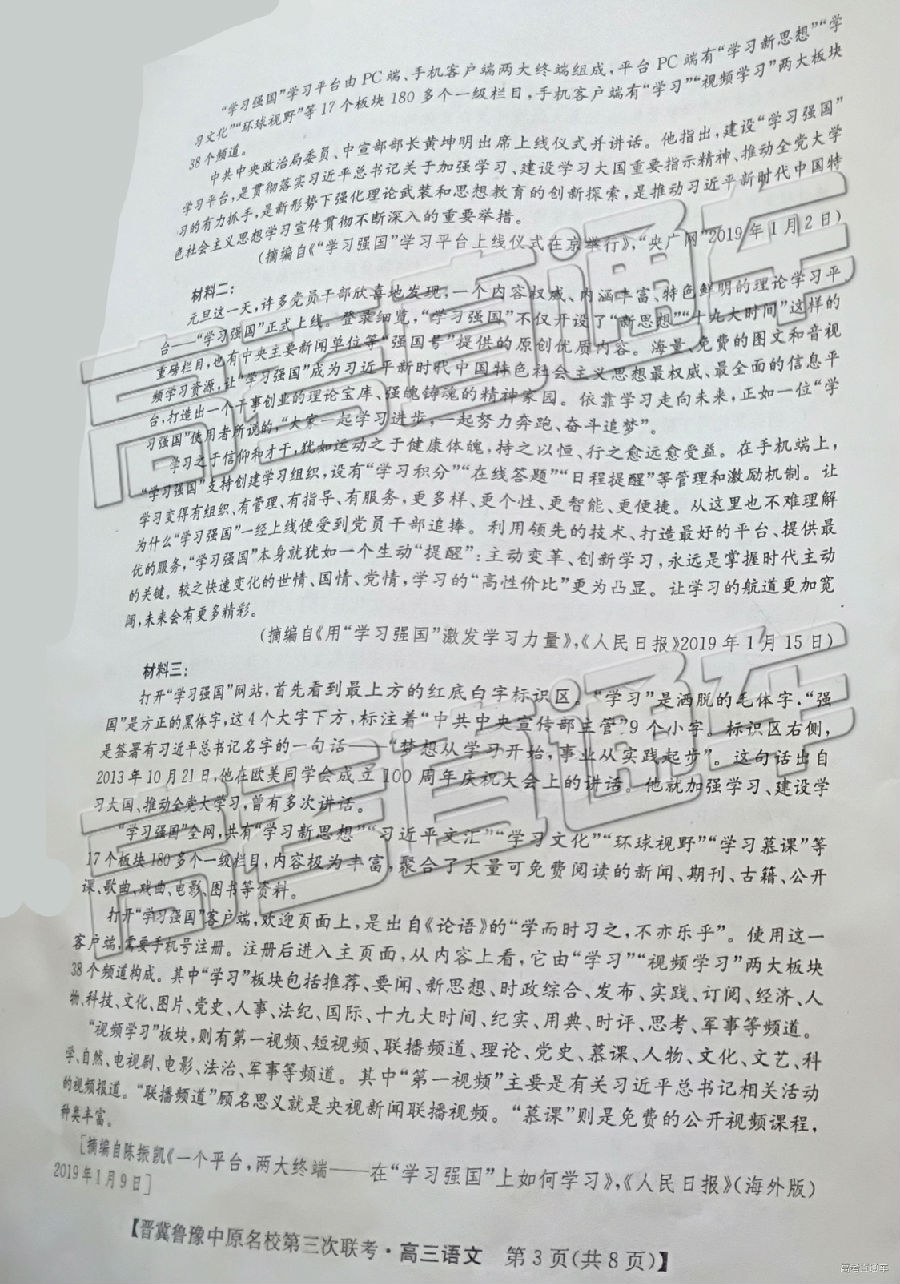 “学习强国”学习平台由PC端、手机客户端两大终端组成,平台PC端有“学习新思想”“学
习文化”“环球视野”等17个板块180多个一级栏目,手机客户端有“学习”“视频学习”两大板块
38个频道。
中共中央政治局委员、中宣部部长黄坤明出席上线仪式并讲话。他指出,建设“学习强国”
学习平台,是贯彻落实习近平总书记关于加强学习、建设学习大国重要指示精神、推动全党大学
习的有力抓手,是新形势下强化理论武装和思想教育的创新探索,是推动习近平新时代中国特
色社会主义思想学习宣传贯彻不断深入的重要举措。
(摘编自《“学习强国”学习平台上线仪式在京举行》,“央广网”2019年1月2日)
材料二:
元旦这一天,许多党员干部欣喜地发现,一个内容权威、内涵丰富、特色鲜明的理论学习平
台——“学习强国”正式上线。登录细览,“学习强国”不仅开设了“新思想”“十九大时间”这样的
重磅栏目,也有中央主要新闻单位等“强国号”提供的原创优质内容。海量、免费的图文和音视
频学习资源,让“学习强国”成为习近平新时代中国特色社会主义思想最权威、最全面的信息平
台,打造出一个干事创业的理论宝库、强魄铸魂的精神家园。依靠学习走向未来,正如一位“学
习强国”使用者所说的,“大家一起学习进步,一起努力奔跑、奋斗追梦”。
学习之于信仰和才干,犹如运动之于健康体魄,持之以恒、行之愈远愈受益。在手机端上,
“学习强国”支持创建学习组织,设有“学习积分”“在线答题”“日程提醒”等管理和激励机制。让
学习变得有组织、有管理、有指导、有服务,更多样、更个性、更智能、更便捷。从这里也不难理解
为什么“学习强国”一经上线便受到党员干部追捧。利用领先的技术、打造最好的平台、提供最
优的服务,“学习强国”本身就犹如一个生动“提醒”:主动变革、创新学习,永远是掌握时代主动
的关键。较之快速变化的世情、国情、党情,学习的“高性价比”更为凸显。让学习的航道更加宽
阔,未来会有更多精彩。
(摘编自《用“学习强国”激发学习力量》,《人民日报》2019年1月15日)
材料三:
打开“学习强国”网站,首先看到最上方的红底白字标识区。“学习”是洒脱的毛体字,“强
国”是方正的黑体字,这4个大字下方,标注着“中共中央宣传部主管”9个小字。标识区右侧,
是签署有习近平总书记名字的一句话——“梦想从学习开始,事业从实践起步”。这句话出自
2013年10月21日,他在欧美同学会成立100周年庆祝大会上的讲话。他就加强学习、建设学
习大国、推动全党大学习,曾有多次讲话。
“学习强国”全网,共有“学习新思想”“习近平文汇”“学习文化”“环球视野”“学习慕课”等
17个板块180多个一级栏目,内容极为丰富,聚合了大量可免费阅读的新闻、期刊、古籍、公开
课、歌曲、戏曲、电影、图书等资料。
打开“学习强国”客户端,欢迎页面上,是出自《论语》的“学而时习之,不亦乐乎”。使用这一
客户端,需要手机号注册。注册后进入主页面,从内容上看,它由“学习”“视频学习”两大板块
38个频道构成。其中“学习”板块包括推荐、要闻、新思想、时政综合、发布、实践、订阅、经济、人
物、科技、文化、图片、党史、人事、法纪、国际、十九大时间、纪实、用典、时评、思考、军事等频道。
“视频学习”板块,则有第一视频、短视频、联播频道、理论、党史、慕课、人物、文化、文艺、科
学、自然、电视剧、电影、法治、军事等频道。其中“第一视频”主要是有关习近平总书记相关活动
的视频报道。“联播频道”顾名思义就是央视新闻联播视频。“慕课”则是免费的公开视频课程,
种类丰富。
[摘编自陈振凯《一个平台,两大终端——在“学习强国”上如何学习》,《人民日报》(海外版)
2019年1月9日]
【晋冀鲁豫中原名校第三次联考·高三语文 第3页(共8页)】
高考直通车
高考直通车
高考直通车